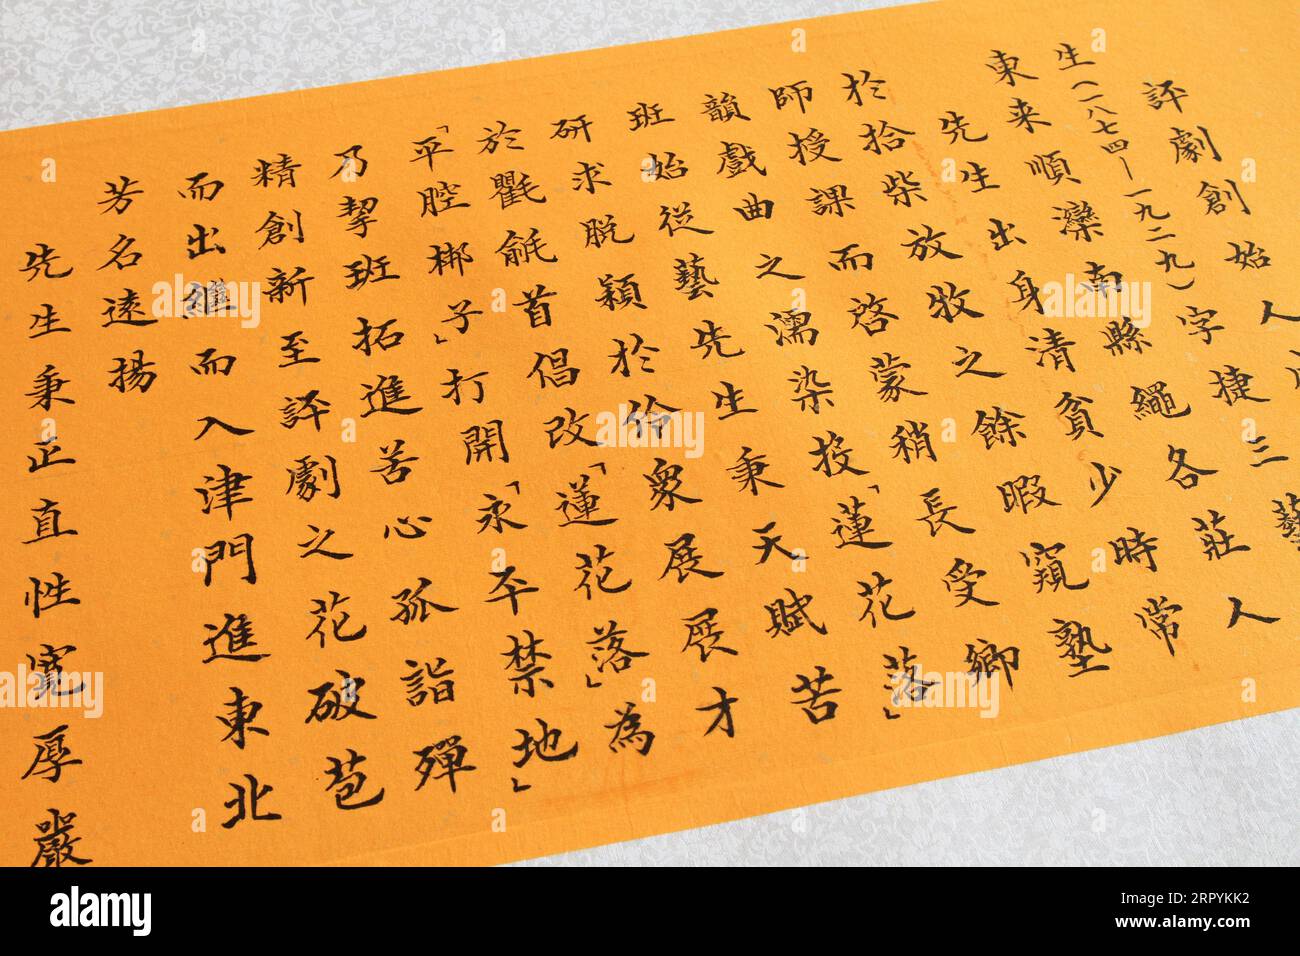 評劇創始人
生(一八七四—一九二九)字捷三藝
東来順灤南縣繩各莊人
先生出身清貧少時常
於拾柴放牧之餘暇窺塾
師授課而啓蒙稍長受鄉
韻戲曲之濡染投「蓮花落」
班始從藝先生秉天賦苦
研求脱穎於伶衆展展才
於氍毹首倡改「蓮花落」為
「平腔梆子」打開「永平禁地」
乃挈班拓進苦心孤詣殫
精創新至評劇之花破苞
而出繼而入津門進東北
芳名遠揚
先生秉正直性寬厚嚴
alamy
Image ID: 2RPYKK2
www.alamy.com